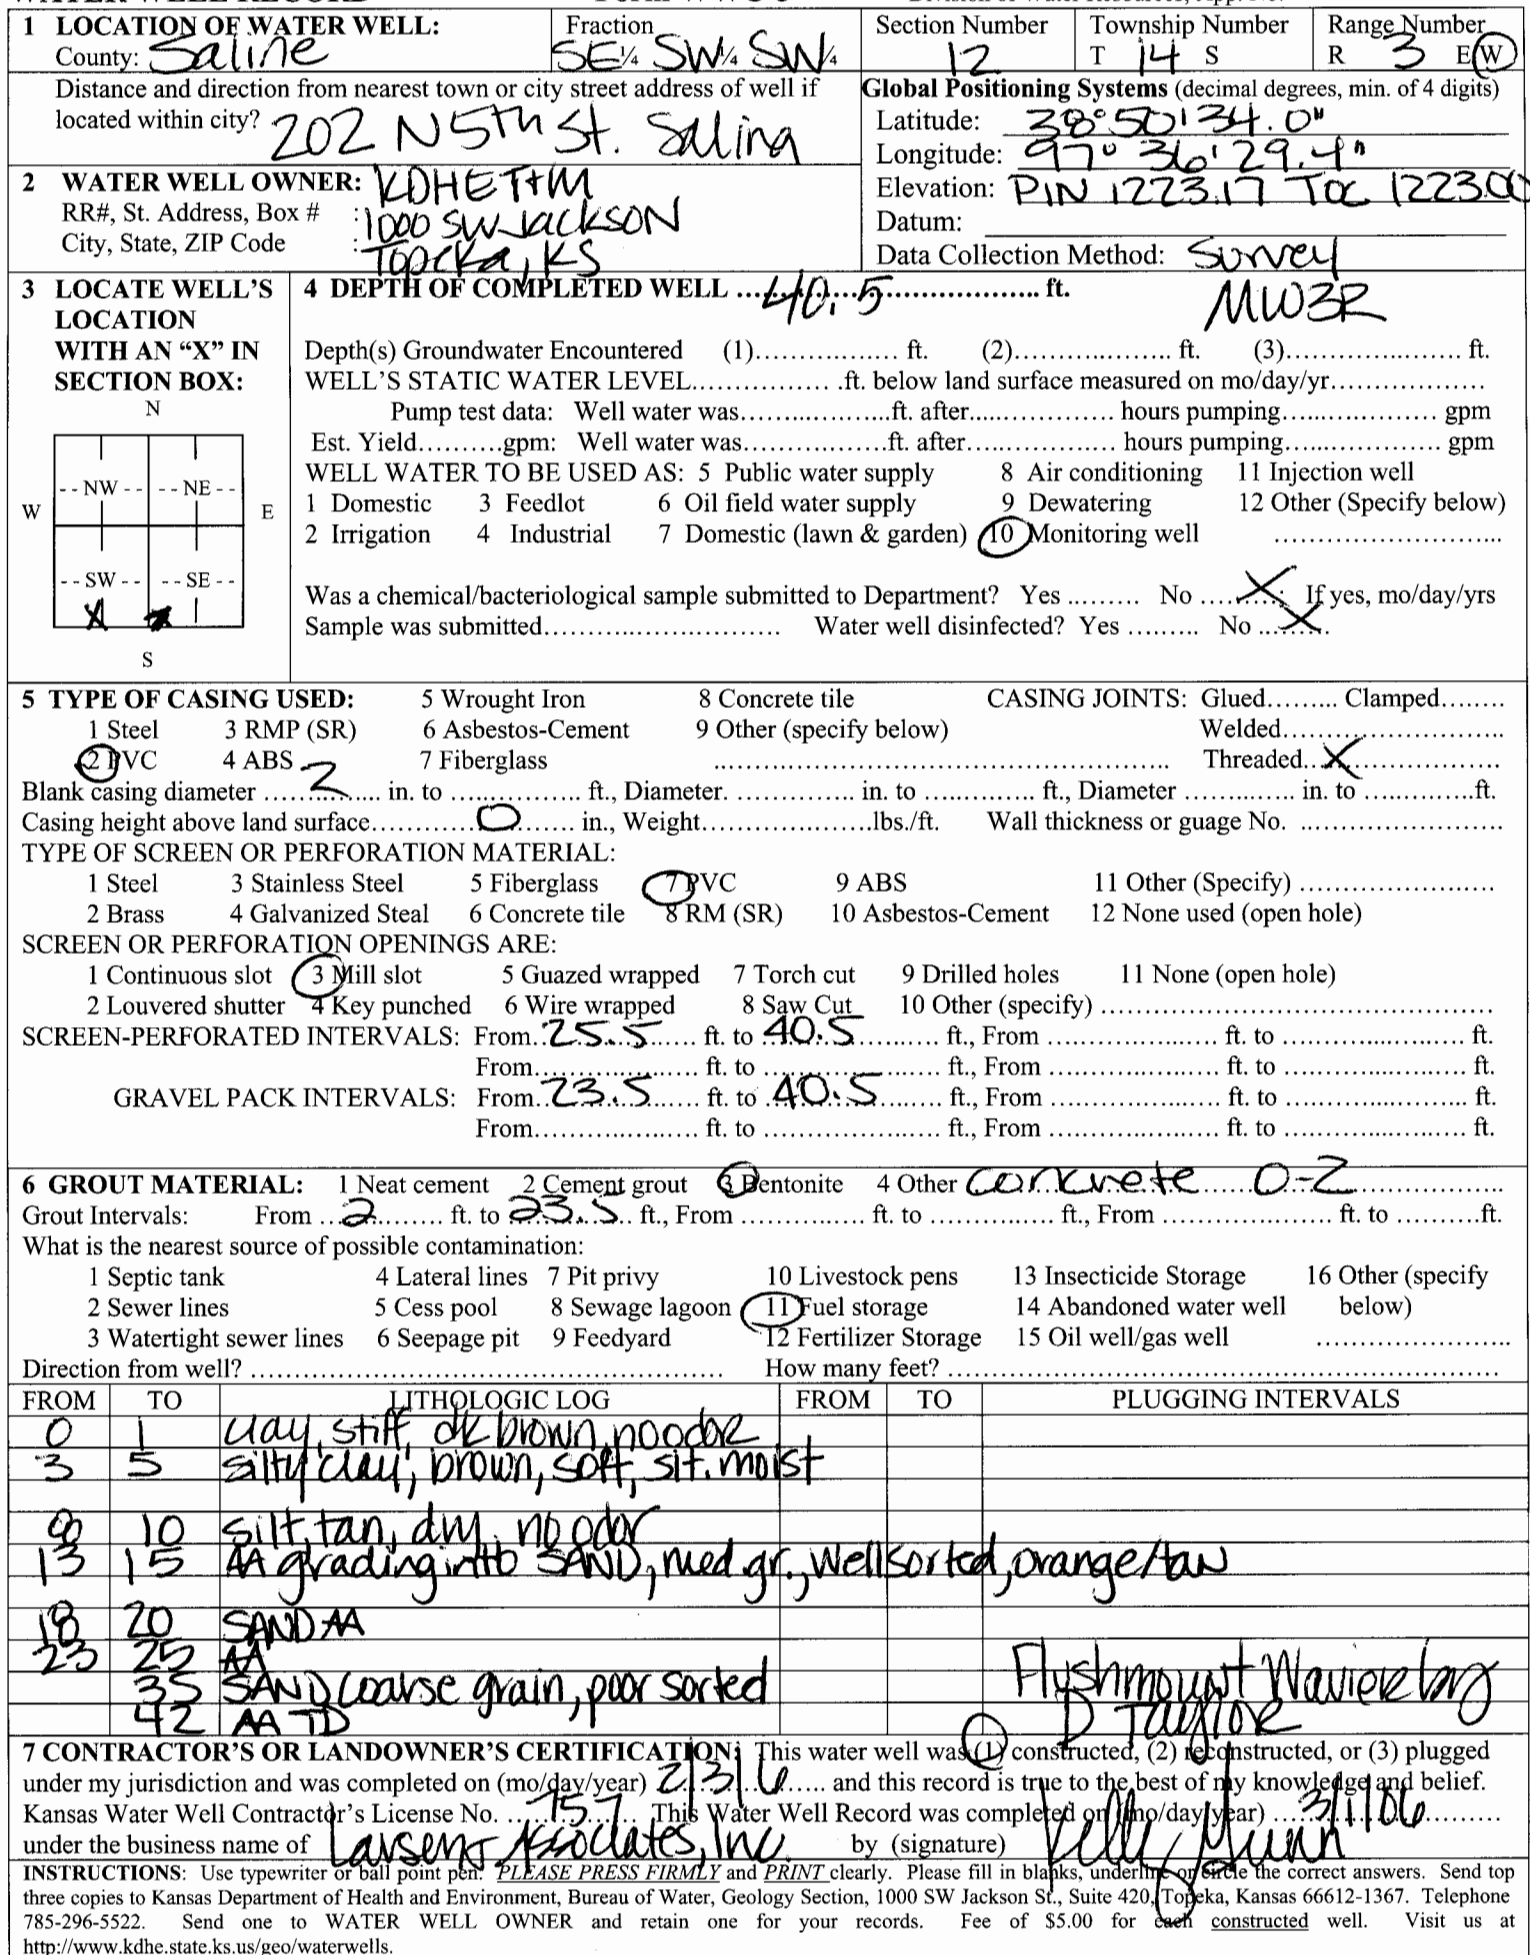 1 LOCATION OF WATER WELL: Fraction Section Number Township Number Range Number
County: Saline SE 1/4 SW 1/4 SW 1/4 12 T 14 S R 3 E W
Distance and direction from nearest town or city street address of well if
located within city? 202 N 5th St. Salina
Global Positioning Systems (decimal degrees, min. of 4 digits)
Latitude: 38° 50' 34.0"
Longitude: 97° 36' 29.4"
Elevation: PIN 1223.17 TOC 1223.00
Datum:
Data Collection Method: Survey
2 WATER WELL OWNER: KDHE T+M
RR#, St. Address, Box # : 1000 SW Jackson
City, State, ZIP Code : Topeka, KS
3 LOCATE WELL'S
LOCATION
WITH AN "X" IN
SECTION BOX:
N
NW NE
W E
SW SE
X
S
4 DEPTH OF COMPLETED WELL 40.5 ft. MW3R
Depth(s) Groundwater Encountered (1) ft. (2) ft. (3) ft.
WELL'S STATIC WATER LEVEL ft. below land surface measured on mo/day/yr
Pump test data: Well water was ft. after hours pumping gpm
Est. Yield gpm: Well water was ft. after hours pumping gpm
WELL WATER TO BE USED AS: 5 Public water supply 8 Air conditioning 11 Injection well
1 Domestic 3 Feedlot 6 Oil field water supply 9 Dewatering 12 Other (Specify below)
2 Irrigation 4 Industrial 7 Domestic (lawn & garden) 10 Monitoring well
Was a chemical/bacteriological sample submitted to Department? Yes No X; If yes, mo/day/yrs
Sample was submitted Water well disinfected? Yes No X
5 TYPE OF CASING USED: 5 Wrought Iron 8 Concrete tile CASING JOINTS: Glued Clamped
1 Steel 3 RMP (SR) 6 Asbestos-Cement 9 Other (specify below) Welded
2 PVC 4 ABS 7 Fiberglass Threaded X
Blank casing diameter 2 in. to ft., Diameter in. to ft., Diameter in. to ft.
Casing height above land surface 0 in., Weight lbs./ft. Wall thickness or guage No.
TYPE OF SCREEN OR PERFORATION MATERIAL:
1 Steel 3 Stainless Steel 5 Fiberglass 7 PVC 9 ABS 11 Other (Specify)
2 Brass 4 Galvanized Steal 6 Concrete tile 8 RM (SR) 10 Asbestos-Cement 12 None used (open hole)
SCREEN OR PERFORATION OPENINGS ARE:
1 Continuous slot 3 Mill slot 5 Guazed wrapped 7 Torch cut 9 Drilled holes 11 None (open hole)
2 Louvered shutter 4 Key punched 6 Wire wrapped 8 Saw Cut 10 Other (specify)
SCREEN-PERFORATED INTERVALS: From 25.5 ft. to 40.5 ft., From ft. to ft.
From ft. to ft., From ft. to ft.
GRAVEL PACK INTERVALS: From 23.5 ft. to 40.5 ft., From ft. to ft.
From ft. to ft., From ft. to ft.
6 GROUT MATERIAL: 1 Neat cement 2 Cement grout 3 Bentonite 4 Other Concrete 0-2
Grout Intervals: From 2 ft. to 23.5 ft., From ft. to ft., From ft. to ft.
What is the nearest source of possible contamination:
1 Septic tank 4 Lateral lines 7 Pit privy 10 Livestock pens 13 Insecticide Storage 16 Other (specify
2 Sewer lines 5 Cess pool 8 Sewage lagoon 11 Fuel storage 14 Abandoned water well below)
3 Watertight sewer lines 6 Seepage pit 9 Feedyard 12 Fertilizer Storage 15 Oil well/gas well
Direction from well? How many feet?
FROM TO LITHOLOGIC LOG FROM TO PLUGGING INTERVALS
0 1 clay, stiff, dk brown, no odor
3 5 silty clay, brown, soft, slt. moist
8 10 silt, tan, dry, no odor
13 15 AA grading into SAND, med. gr., well sorted, orange/tan
18 20 SAND AA
23 25 AA
35 SAND coarse grain, poor sorted
42 AA TD
Flushmount Wavier by
D Taylor
7 CONTRACTOR'S OR LANDOWNER'S CERTIFICATION: This water well was (1) constructed, (2) reconstructed, or (3) plugged
under my jurisdiction and was completed on (mo/day/year) 2/3/6 and this record is true to the best of my knowledge and belief.
Kansas Water Well Contractor's License No. 757 This Water Well Record was completed on (mo/day/year) 3/1/06
under the business name of Larsen & Associates, Inc. by (signature)
INSTRUCTIONS: Use typewriter or ball point pen. PLEASE PRESS FIRMLY and PRINT clearly. Please fill in blanks, underline or circle the correct answers. Send top
three copies to Kansas Department of Health and Environment, Bureau of Water, Geology Section, 1000 SW Jackson St., Suite 420, Topeka, Kansas 66612-1367. Telephone
785-296-5522. Send one to WATER WELL OWNER and retain one for your records. Fee of $5.00 for each constructed well. Visit us at
http://www.kdhe.state.ks.us/geo/waterwells.